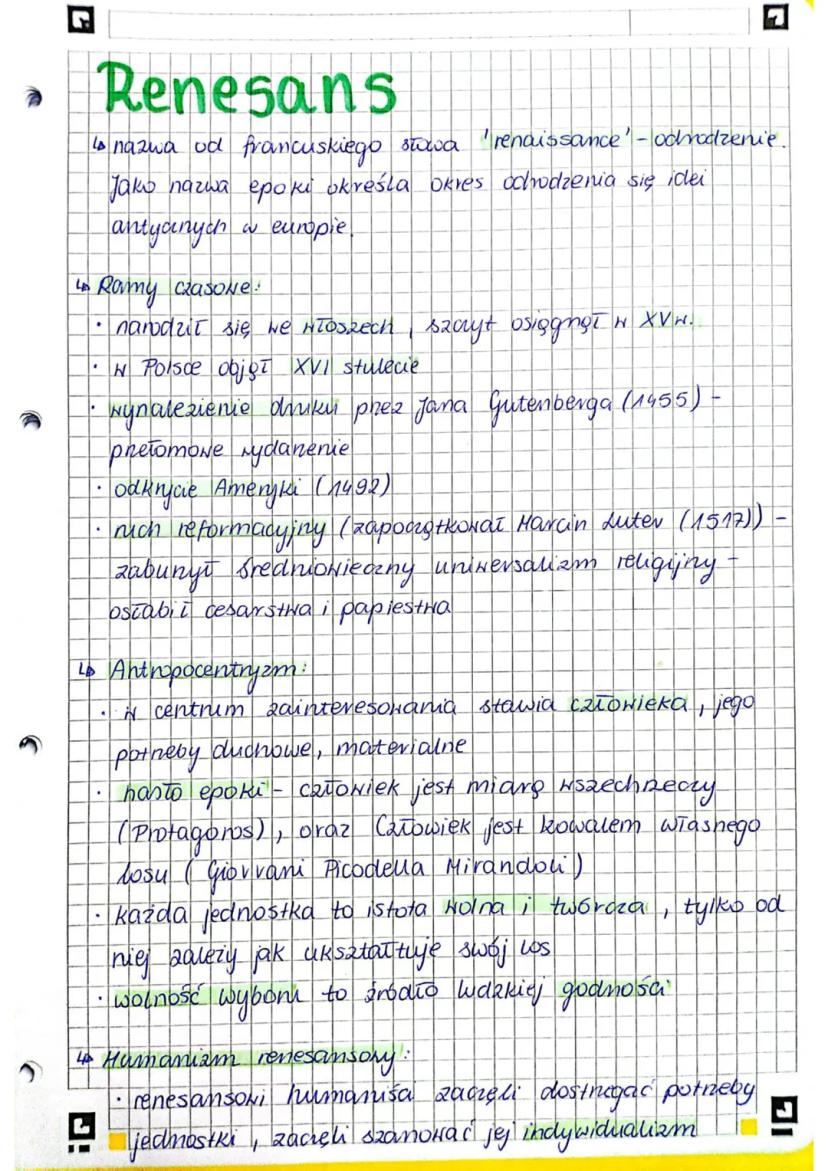 Renesans
↳ nazwa od francuskiego słowa 'renaissance' - odrodzenie.
Jako nazwa epoki określa okres odrodzenia się idei
antycznych w europie.
↳ Ramy czasowe:
· narodził się we włoszech, szczyt osiągnął w XVw.
· w Polsce objął XVI stulecie
· wynalezienie druku przez Jana Gutenberga (1455) -
przełomowe wydarzenie
· odkrycie Ameryki (1492)
· ruch reformacyjny (zapoczątkował Marcin Luter (1517)) -
zaburzył średniowieczny uniwersalizm religijny -
osłabił cesarstwa i papiestwa
↳ Antropocentryzm:
· w centrum zainteresowania stawia człowieka, jego
potrzeby duchowe, materialne
· hasło epoki - człowiek jest miarą wszechrzeczy
(Protagoros), oraz Człowiek jest kowalem własnego
losu (Giovvani Picodella Mirandoli)
· każda jednostka to istota wolna i twórcza, tylko od
niej zależy jak ukształtuje swój los
· wolność wyboru to źródło ludzkiej godności
↳ Humanizm renesansowy:
· renesansowi humaniśa zaczęli dostrzegać potrzeby
jednostki, zaczęli szanować jej indywidualizm